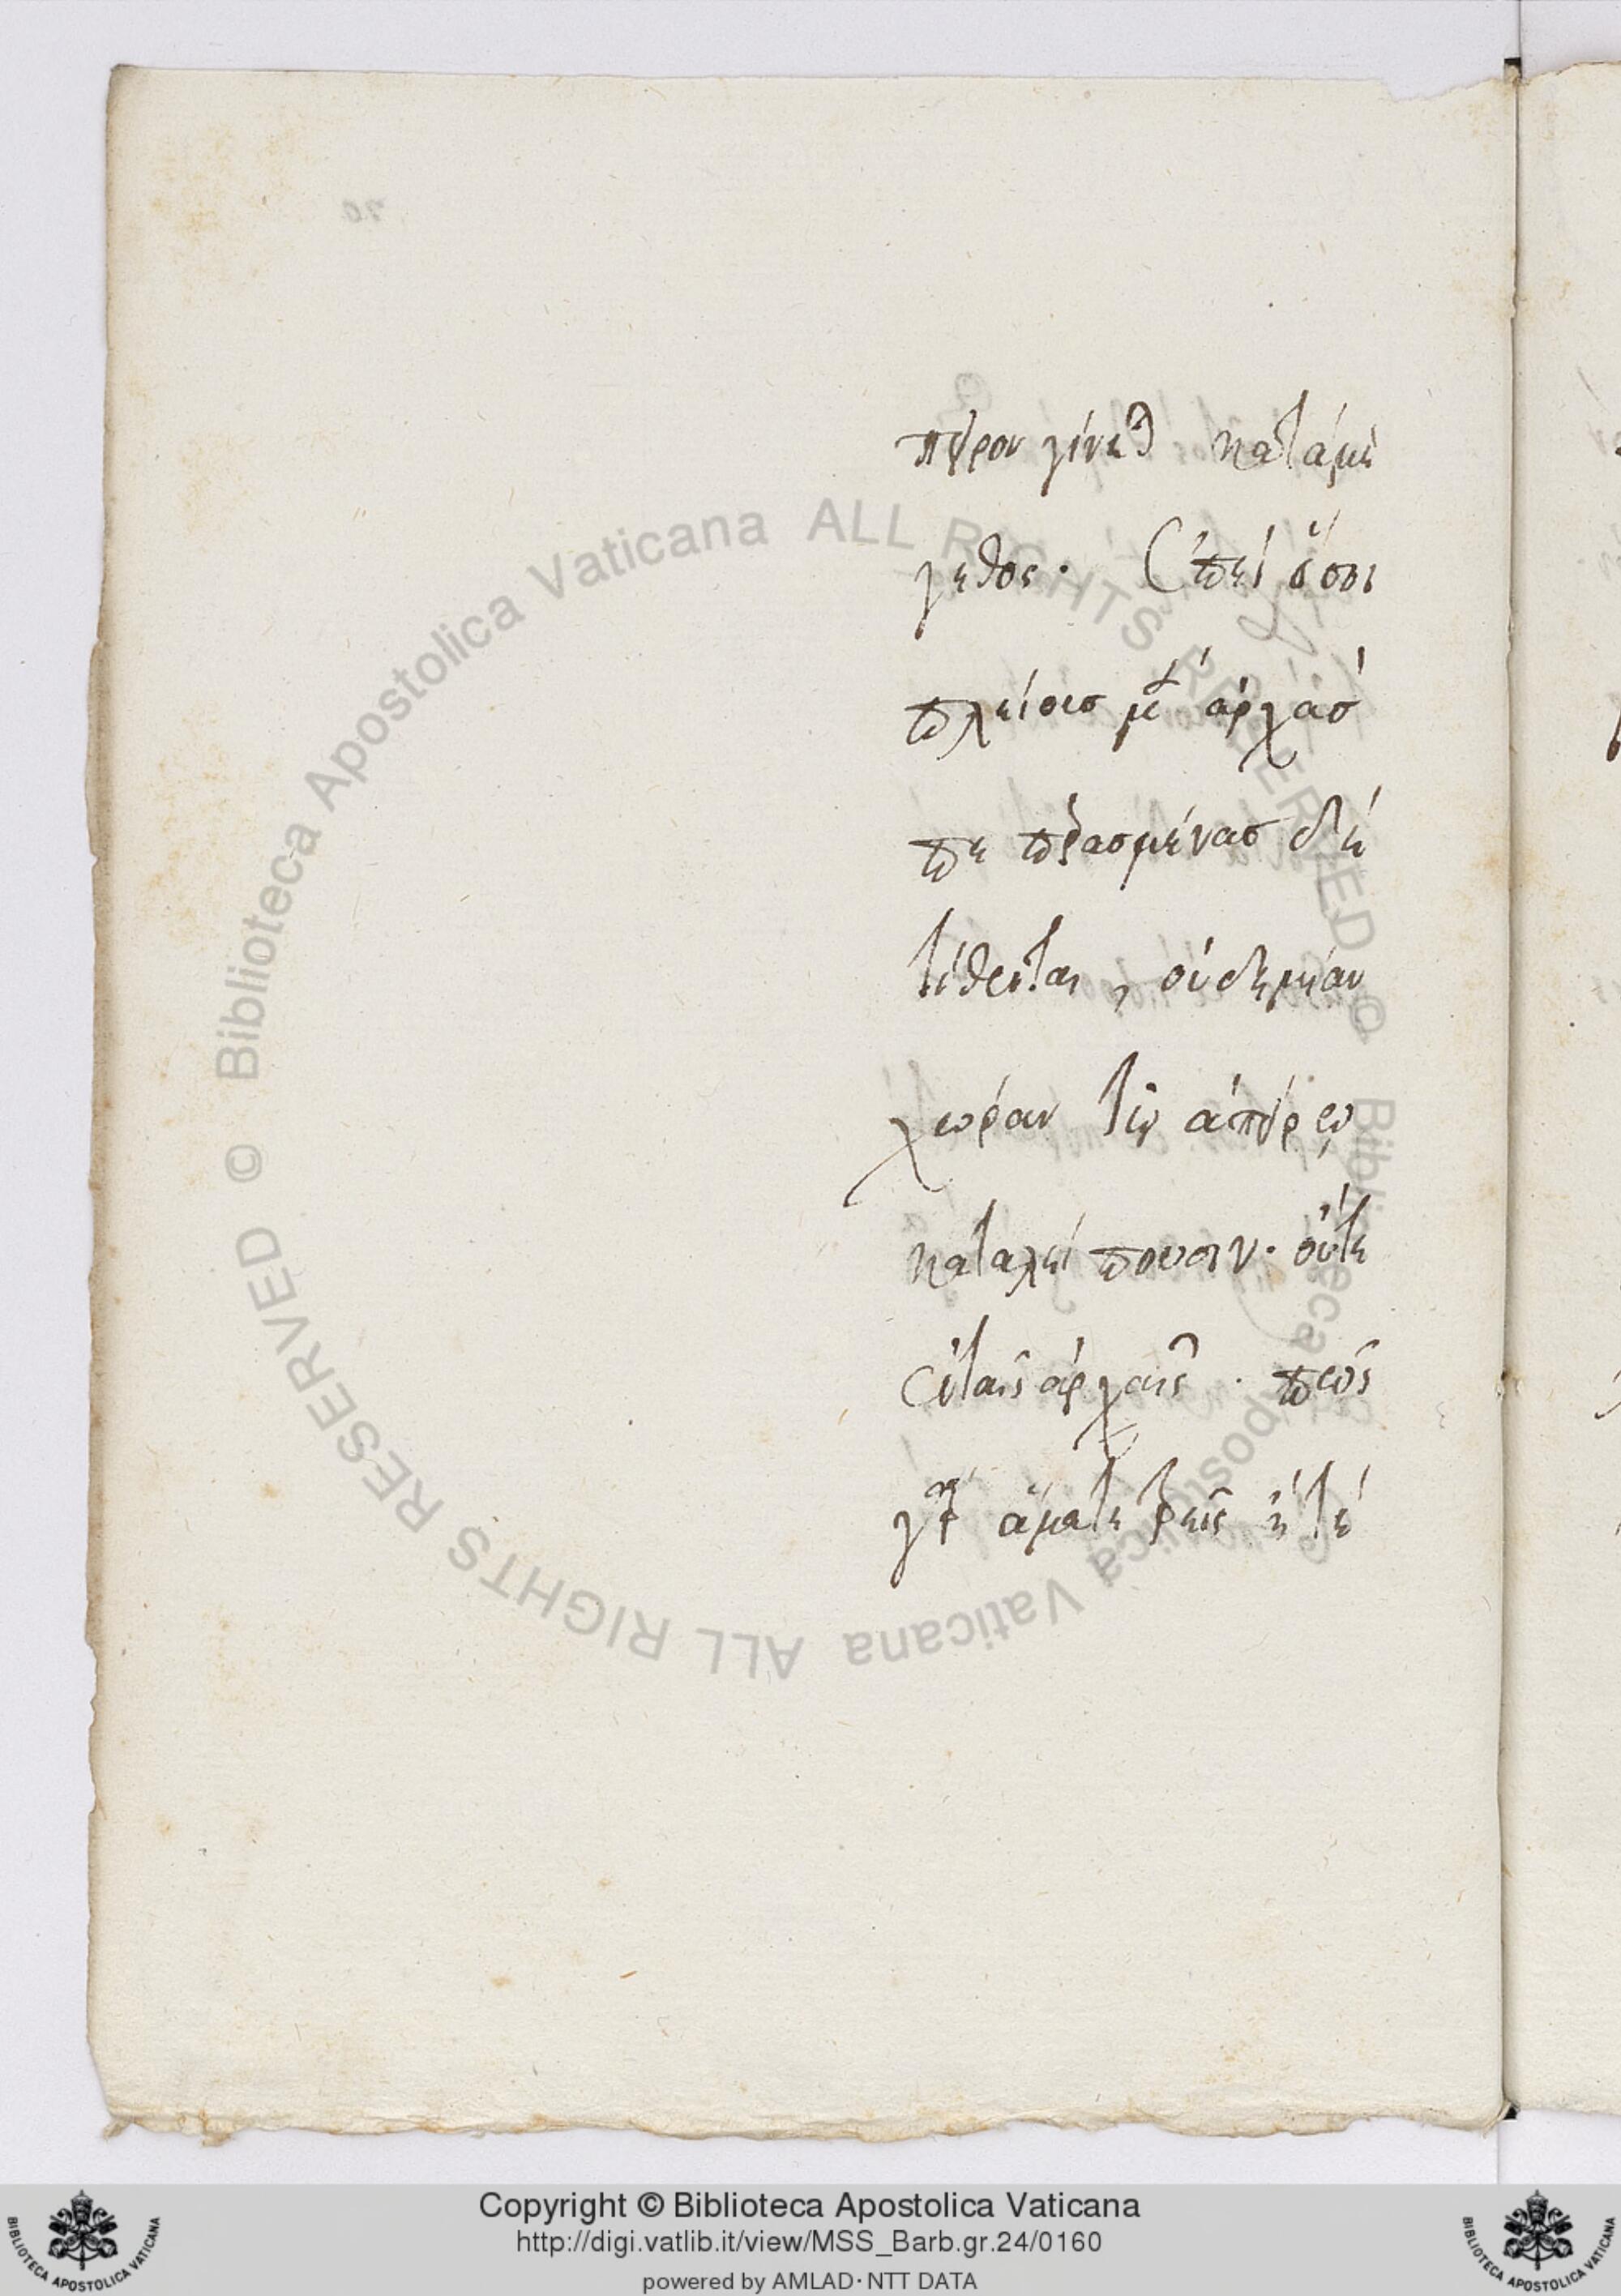 πειρον γίνεται κατα με
γεθος. Επεὶ ὅσοι
πλείους μὲν ἀρχὰσ
πεπερασμένασ δὲ
τίθενται, οὐδεμίαν
χώραν τῷ ἀπείρῳ
καταλείπουσιν. οὔτε
ἐν ταῖς ἀρχαῖς. πῶς
γὰρ ἅμα
© Biblioteca Apostolica Vaticana ALL RIGHTS RESERVED © Biblioteca Apostolica Vaticana ALL RIGHTS RESERVED
Copyright © Biblioteca Apostolica Vaticana
http://digi.vatlib.it/view/MSS_Barb.gr.24/0160
powered by AMLAD·NTT DATA
BIBLIOTECA APOSTOLICA VATICANA
BIBLIOTECA APOSTOLICA VATICANA